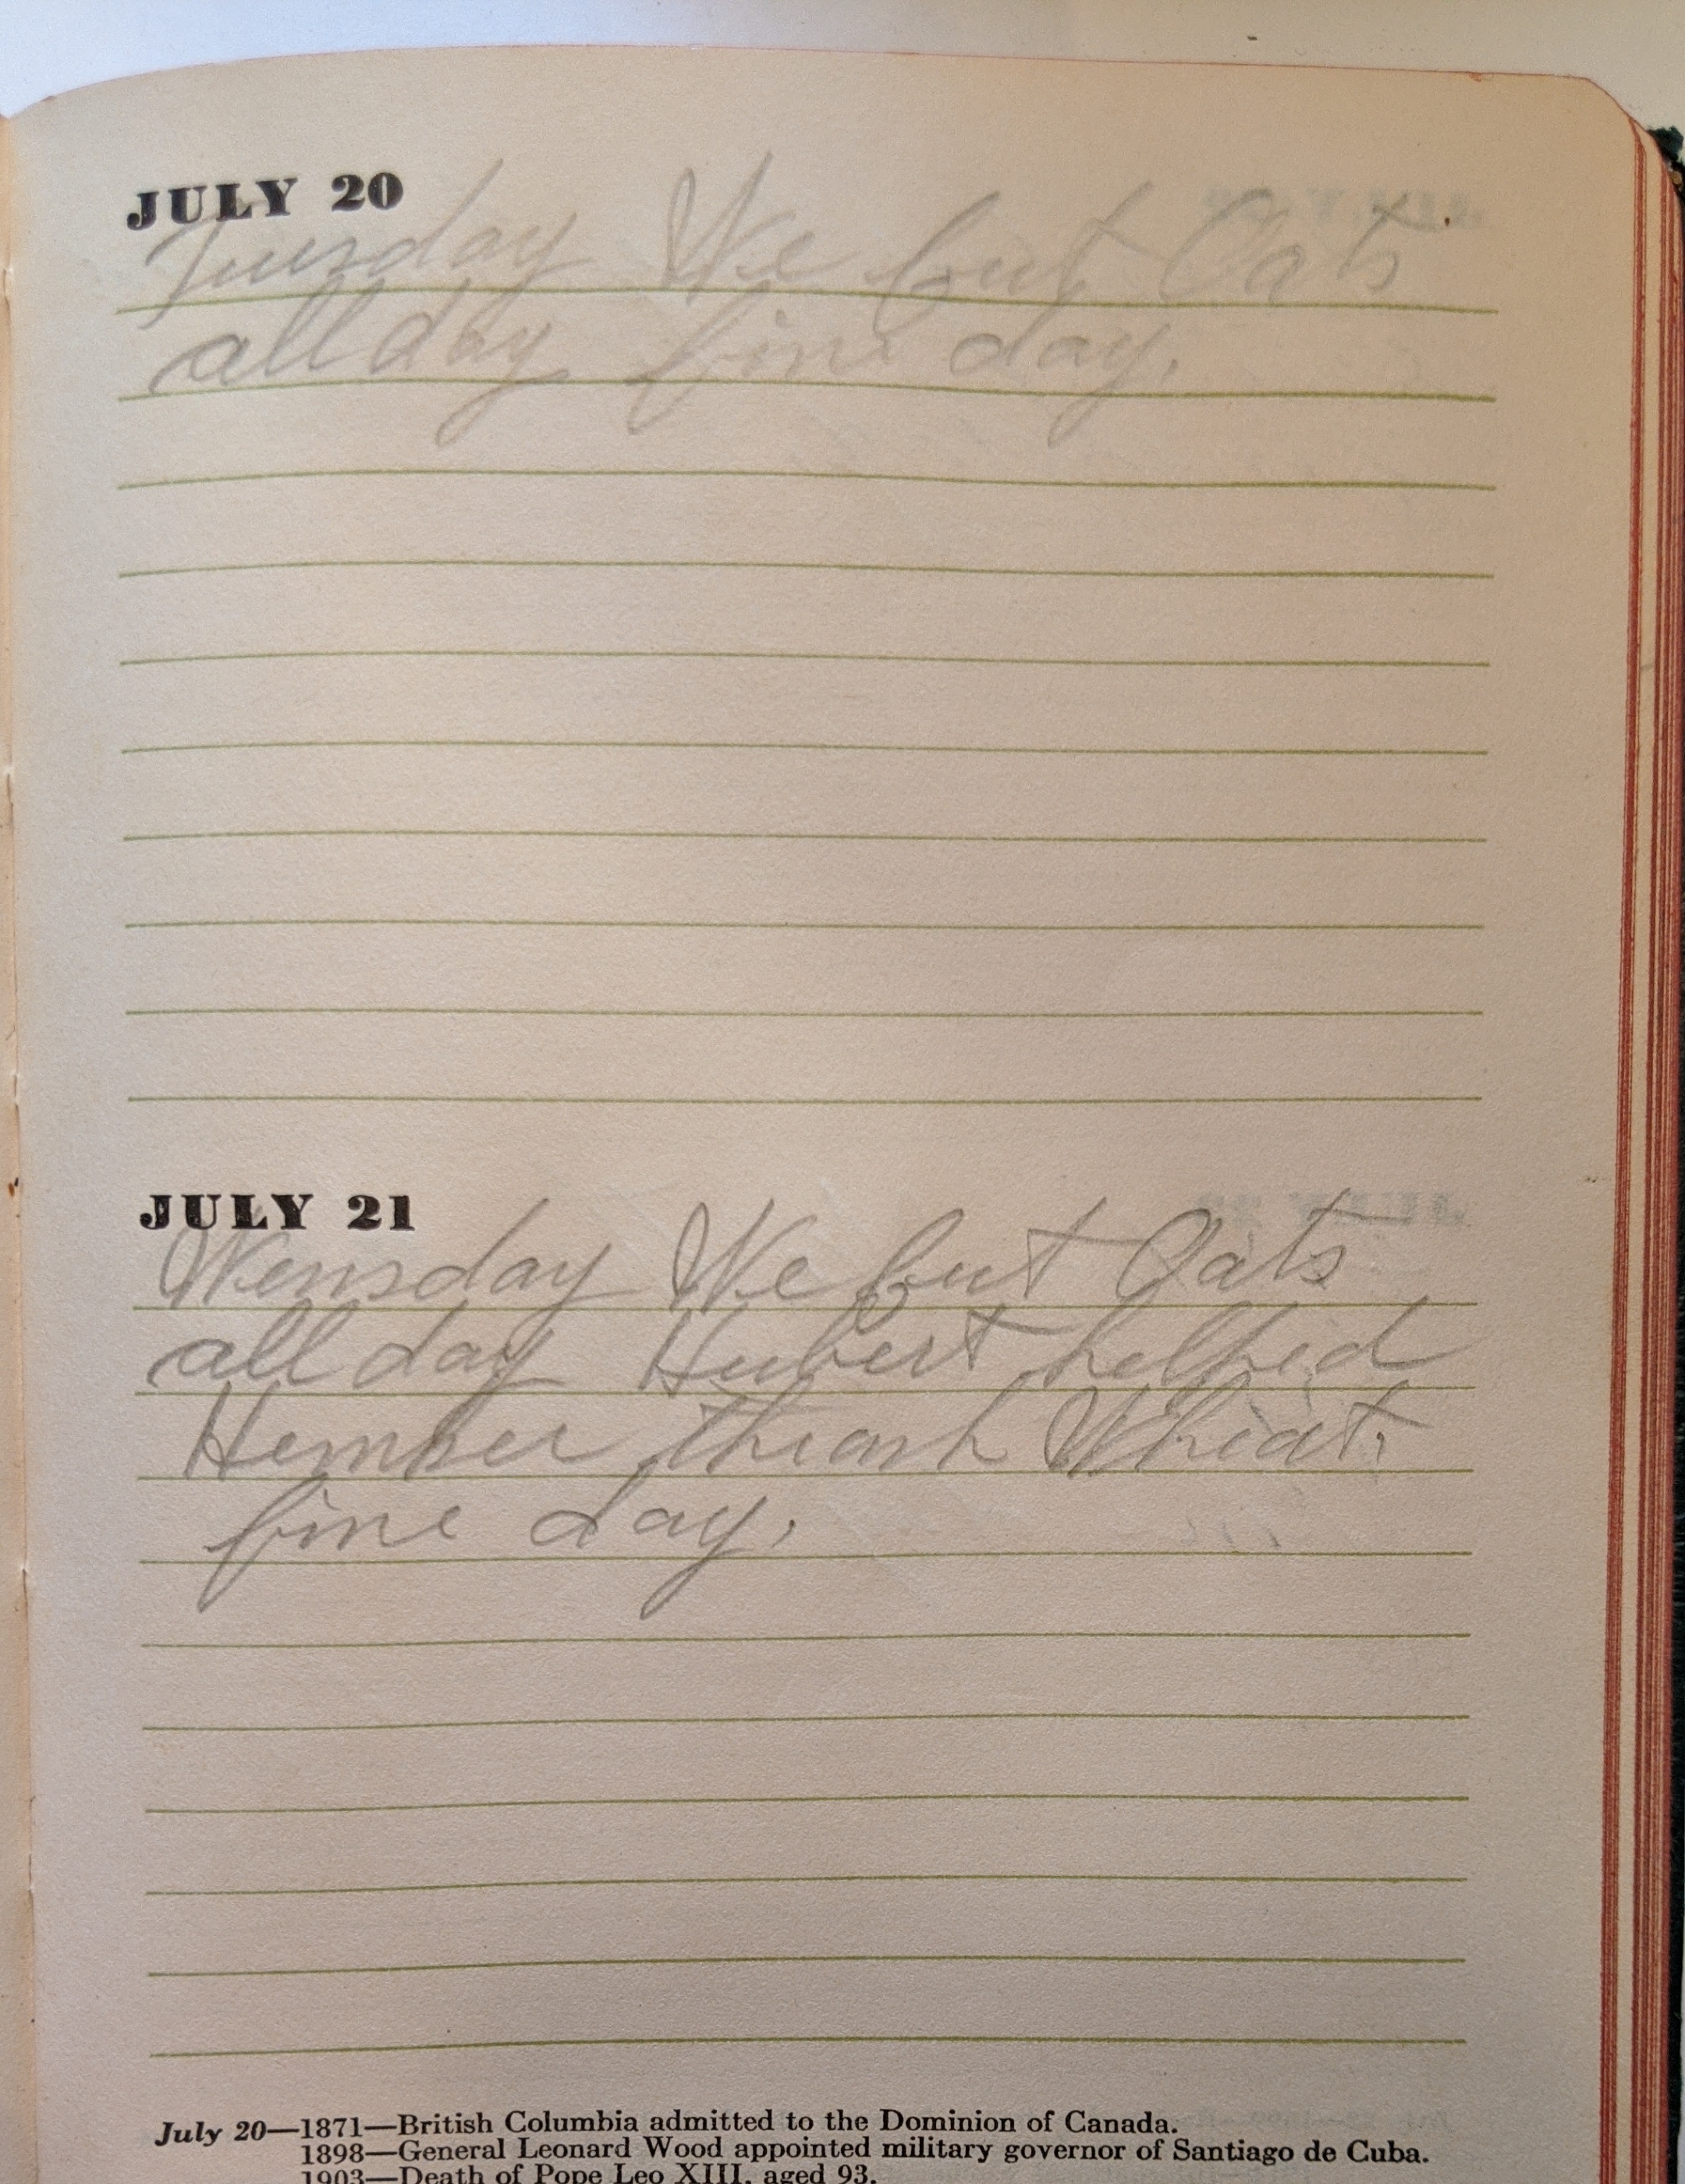 JULY 20
Tuesday We put Oats
all day fine day.
JULY 21
Wensday We put Oats
all day Hubert helped
thrash Wheat.
fine day.
July 20—1871—British Columbia admitted to the Dominion of Canada.
1898—General Leonard Wood appointed military governor of Santiago de Cuba.
1903—Death of Pope Leo XIII, aged 93.